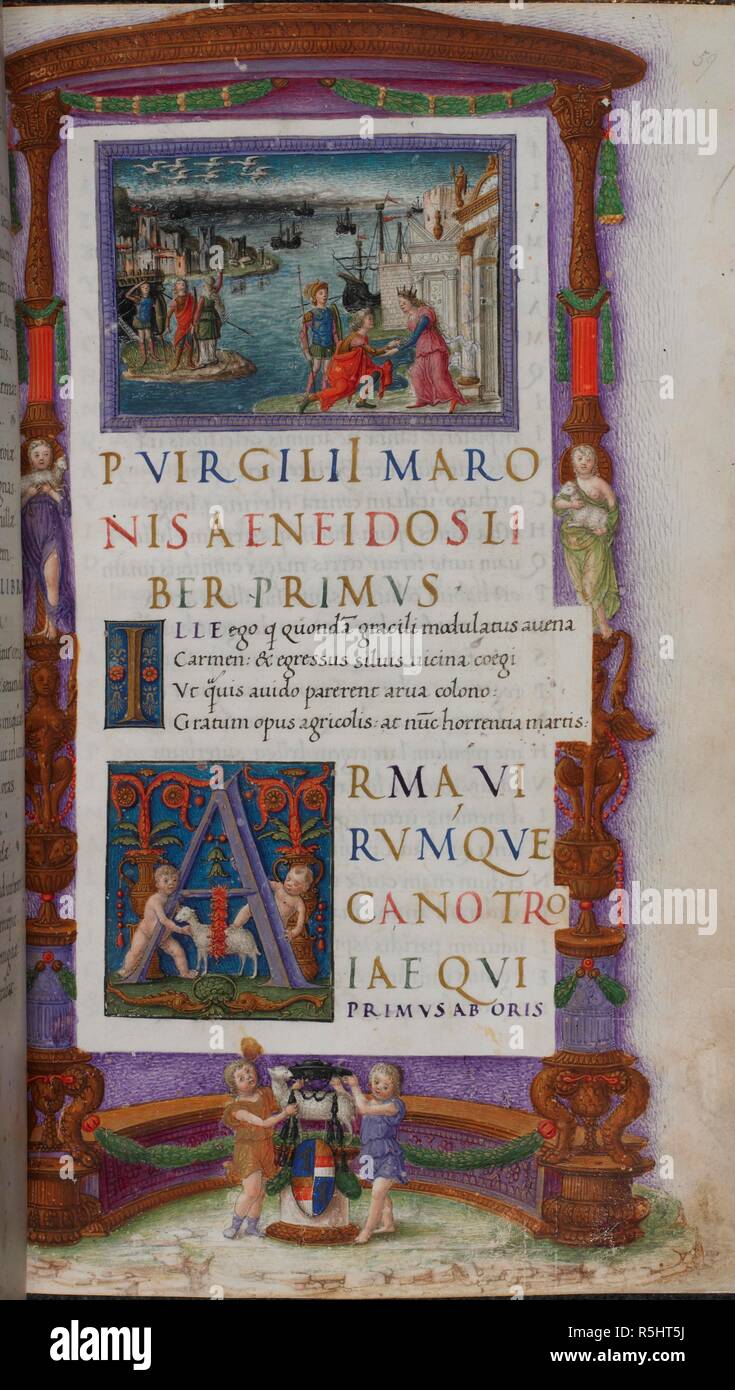 59
P VIRGILII MARO
NIS AENEIDOS LI
BER · PRIMVS ·
ILLE ego q̃ quondã gracili modulatus auena
Carmen: & egressus siluis uicina coegi
Vt q̃uis auido parerent arua colono:
Gratum opus agricolis: at nũc horrentia martis:
ARMA VI
RVMQVE
CANO TRO
IAE QVI
PRIMVS AB ORIS
LIBR
a
alamy
alamy
a
a
alamy
Image ID: R5HT5J
www.alamy.com